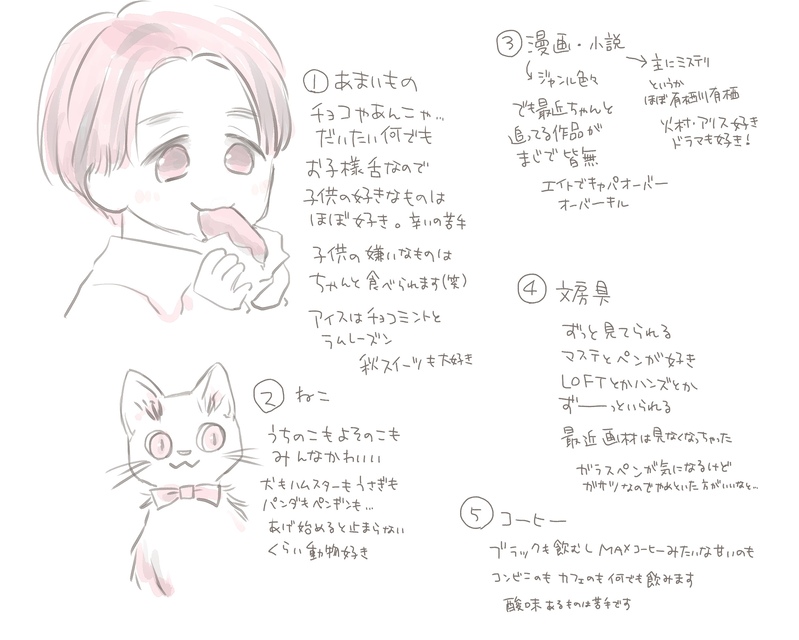 ① あまいもの
チョコやあんこや…
だいたい何でも
お子様舌なので
子供の好きなものは
ほぼ好き。辛いの苦手
子供の嫌いなものは
ちゃんと食べられます(笑)
アイスはチョコミントと
ラムレーズン
秋スイーツも大好き
② ねこ
うちのこもよそのこも
みんなかわいい
犬もハムスターもうさぎも
パンダもペンギンも…
あげ始めると止まらない
くらい動物好き
③ 漫画・小説
ジャンル色々
でも最近ちゃんと
追ってる作品が
まじで皆無
エイトでキャパオーバー
オーバーキル
主にミステリ
というか
ほぼ有栖川有栖
火村・アリス好き
ドラマも好き!
④ 文房具
ずっと見てられる
マステとペンが好き
LOFTとかハンズとか
ず――っといられる
最近画材は見なくなっちゃった
ガラスペンが気になるけど
ガサツなのでやめといた方がいいなと…
⑤ コーヒー
ブラックも飲むし MAXコーヒーみたいな甘いのも
コンビニのも カフェのも何でも飲みます
酸味あるものは苦手です